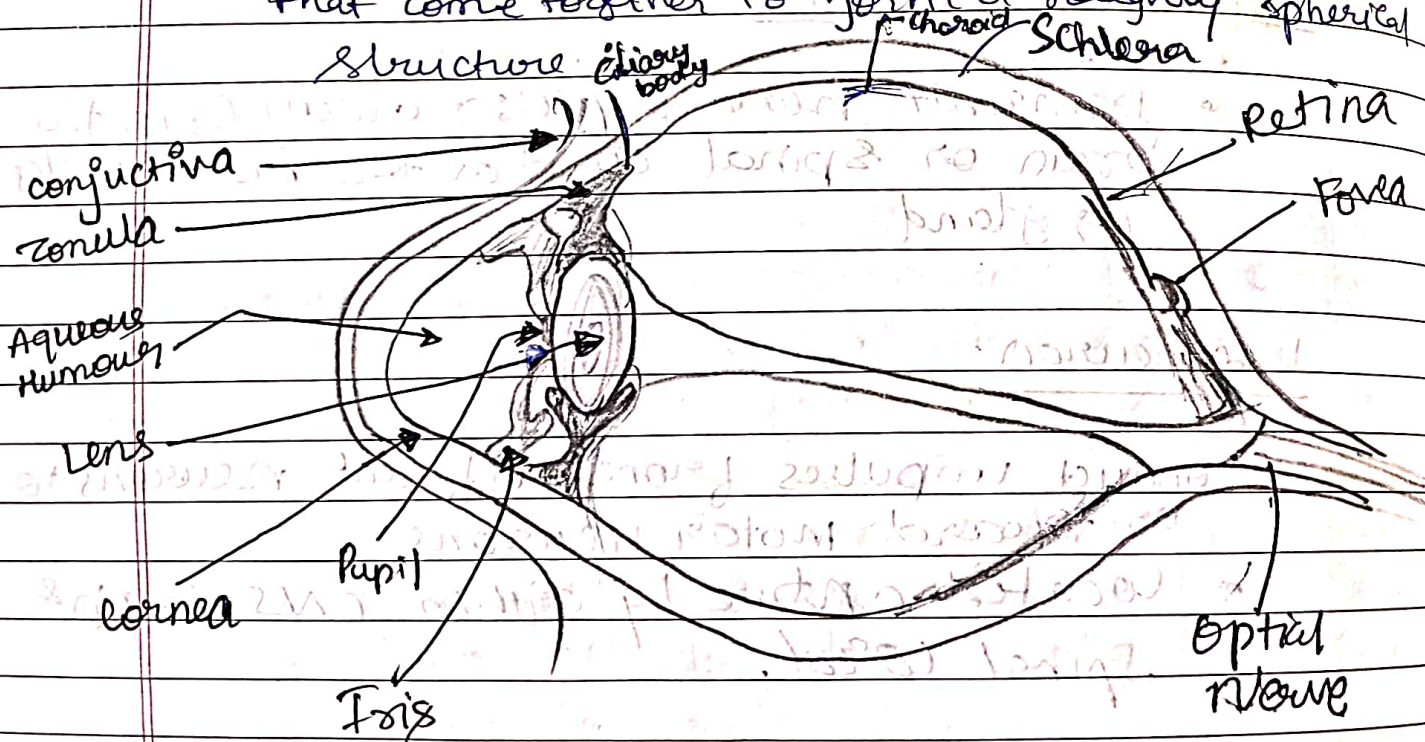 that come together to form a roughly spherical
structure.
Ciliary
body
Choroid
Schlera
Retina
Fovea
conjuctiva
zonula
Aqueous
Humour
Lens
Cornea
Pupil
Iris
Optial
Nerve